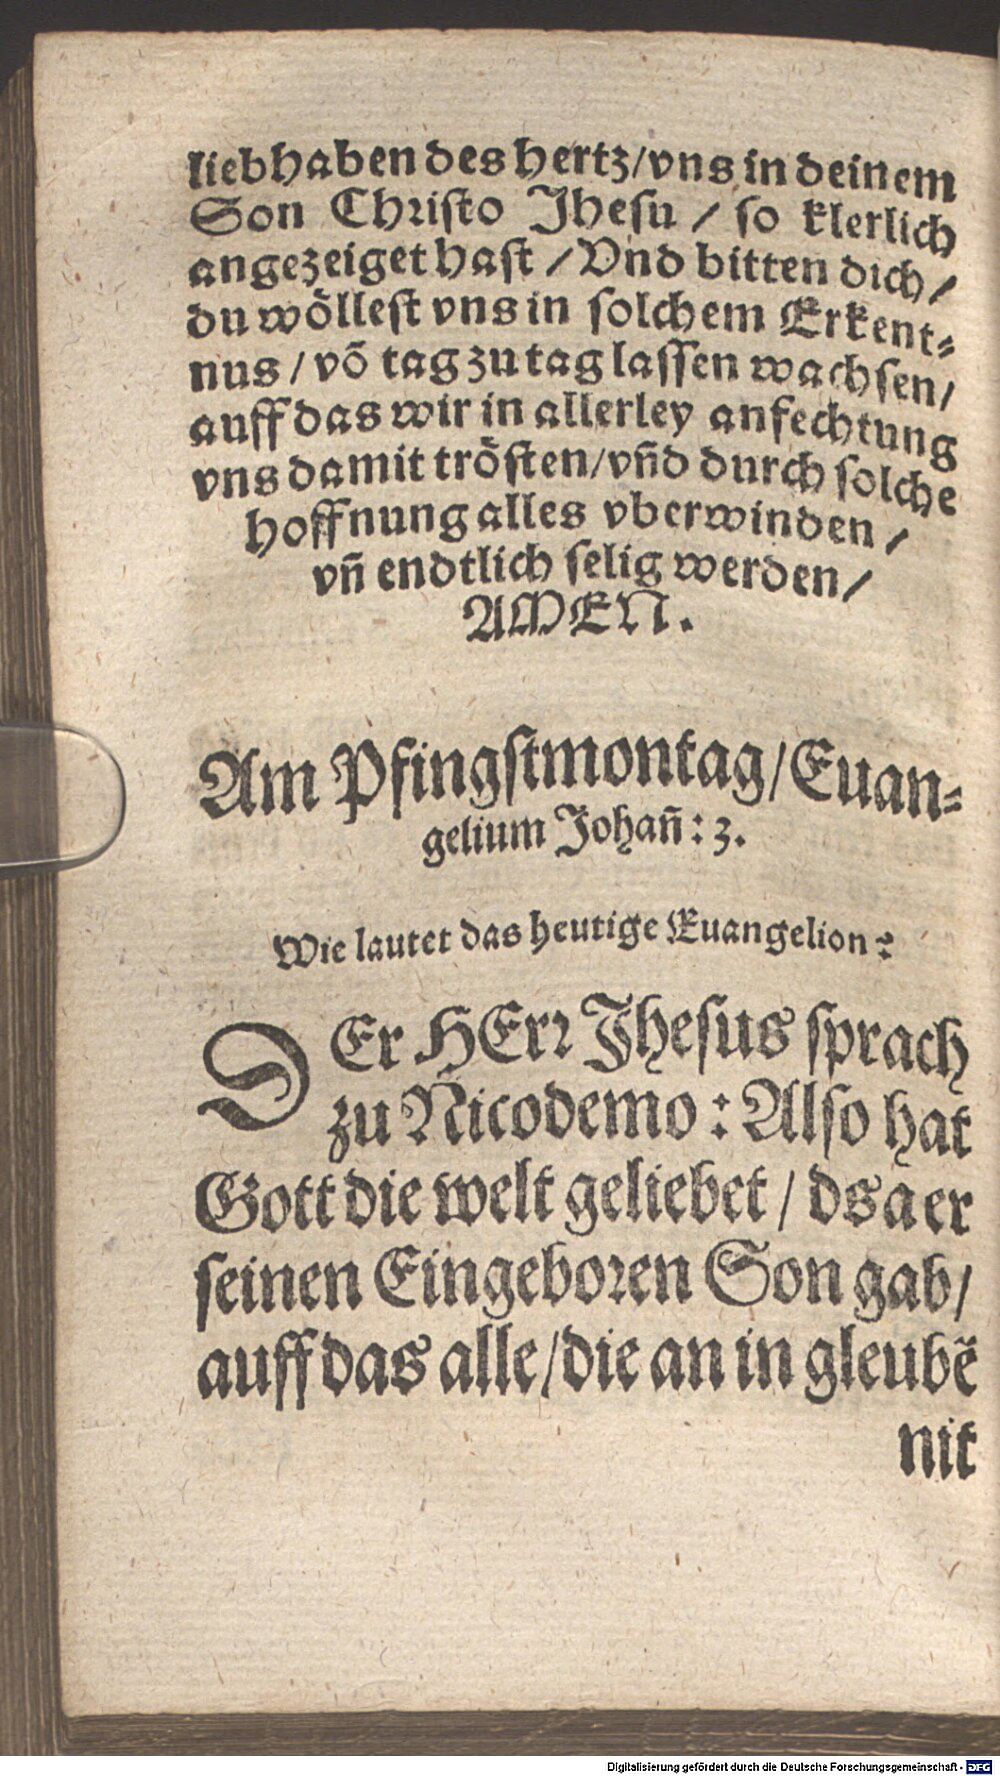 liebhabendes hertz/vns in deinem
Son Christo Jhesu / so klerlich
angezeiget hast / Vnd bitten dich /
du wöllest vns in solchem Erkent⸗
nus / võ tag zu tag lassen wachsen /
auff das wir in allerley anfechtung
vns damit trösten / vñd durch solche
hoffnung alles vberwinden /
vñ endtlich selig werden /
AMEN.
Am Pfingstmontag / Euan⸗
gelium Johañ : 3.
Wie lautet das heutige Euangelion?
DEr HErr Jhesus sprach
zu Nicodemo : Also hat
Gott die welt geliebet / dsa er
seinen Eingeboren Son gab /
auff das alle / die an in gleubẽ
nit
Digitalisierung gefördert durch die Deutsche Forschungsgemeinschaft - DFG